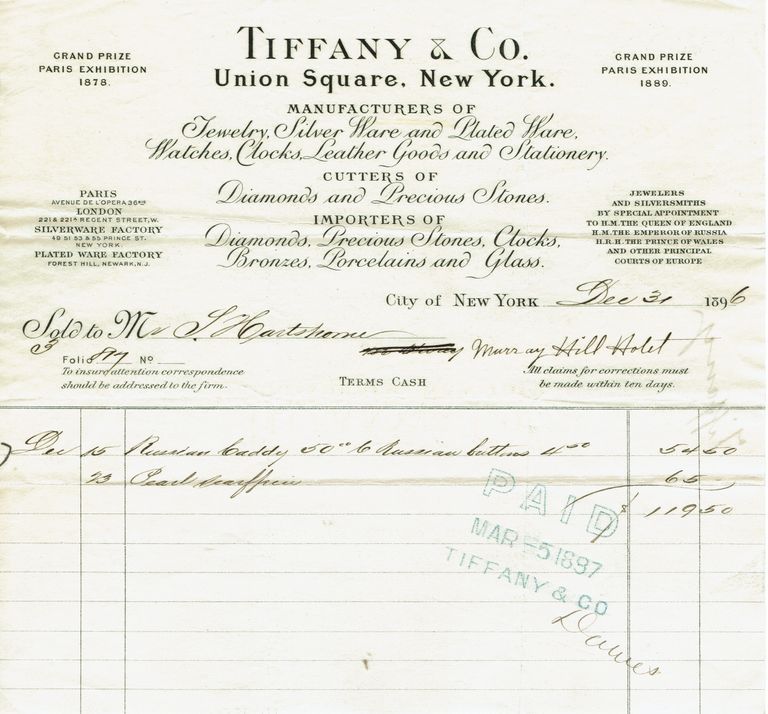 TIFFANY & CO.
Union Square, New York.
GRAND PRIZE
PARIS EXHIBITION
1878.
GRAND PRIZE
PARIS EXHIBITION
1889.
MANUFACTURERS OF
Jewelry, Silver Ware and Plated Ware,
Watches, Clocks, Leather Goods and Stationery.
CUTTERS OF
Diamonds and Precious Stones.
IMPORTERS OF
Diamonds, Precious Stones, Clocks,
Bronzes, Porcelains and Glass.
PARIS
AVENUE DE L'OPERA 36BIS
LONDON
221 & 221A REGENT STREET, W.
SILVERWARE FACTORY
49 51 53 & 55 PRINCE ST.
NEW YORK.
PLATED WARE FACTORY
FOREST HILL, NEWARK, N.J.
JEWELERS
AND SILVERSMITHS
BY SPECIAL APPOINTMENT
TO H.M. THE QUEEN OF ENGLAND
H.M. THE EMPEROR OF RUSSIA
H.R.H. THE PRINCE OF WALES
AND OTHER PRINCIPAL
COURTS OF EUROPE
City of NEW YORK Dec 31 1896
Sold to Mr S Hartshorne
Murray Hill Hotel
3 Folio No
To insure attention correspondence
should be addressed to the firm.
TERMS CASH
All claims for corrections must
be made within ten days.
Dec 15 Russian Caddy 50 00 6 Russian buttons 4 50 54 50
23 Pearl scarfpin 65
$ 119 50
PAID
MAR -5 1897
TIFFANY & CO